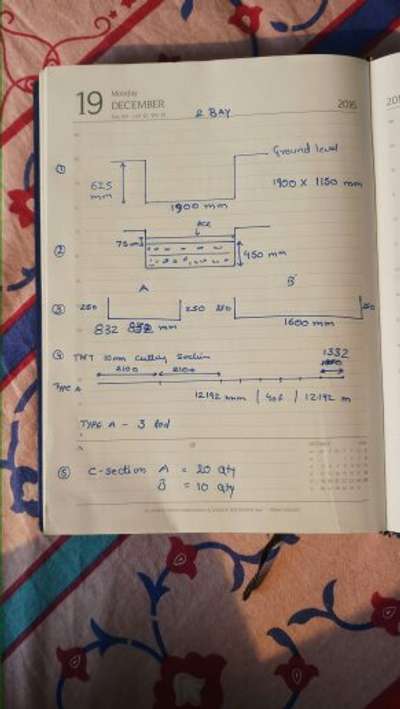 19 Monday
DECEMBER
2016
2 BAY
① Ground level
625 mm
1900 x 1150 mm
1900 mm
② PCC
75mm
450 mm
A B
③ 250 250 250 250
832 832 mm 1600 mm
④ TMT 10mm Cutting Section
1332
2100 2100
TYPE A
12192 mm | 40f | 12192 m
TYPE A - 3 Rod
⑤ C-section A = 20 Qty
B = 10 Qty